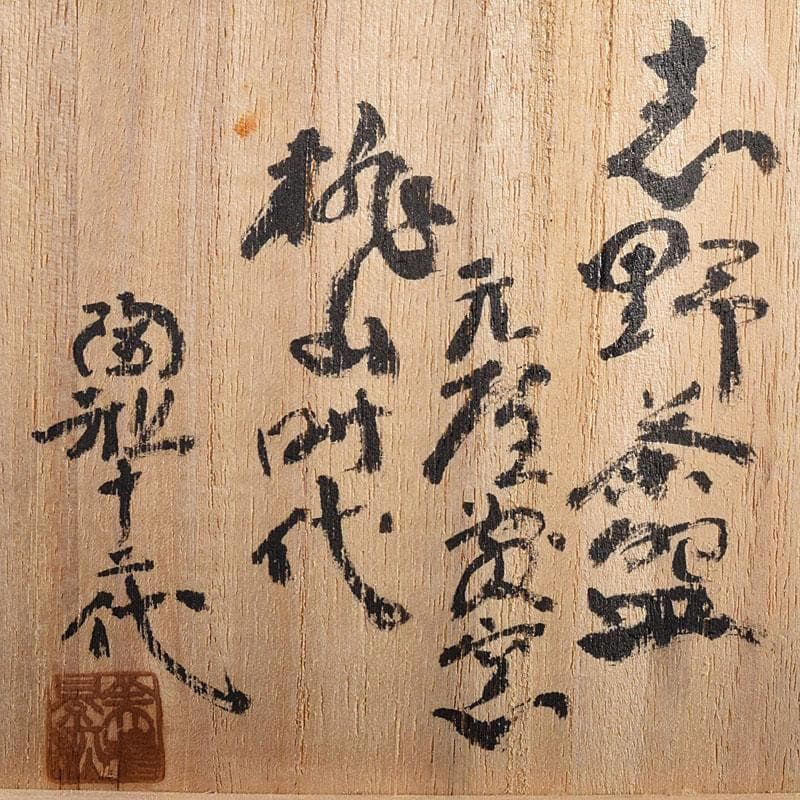 志野茶盌
元屋敷窯
桃山時代
陶祖十二代